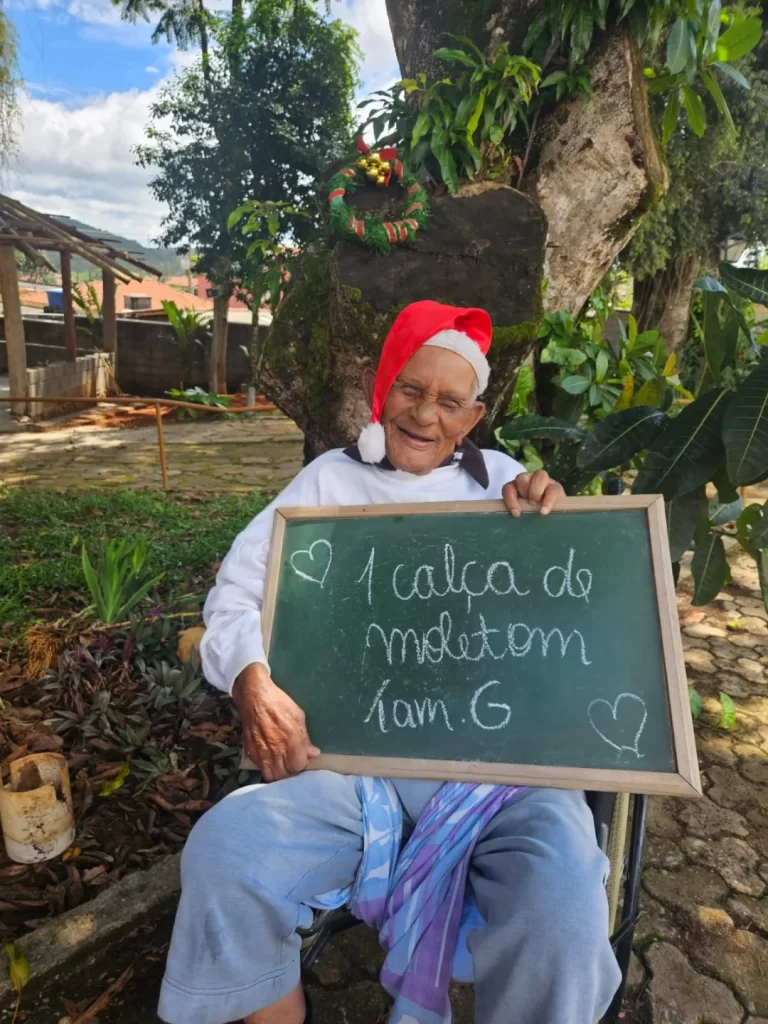 1 calça de
moletom
tam. G